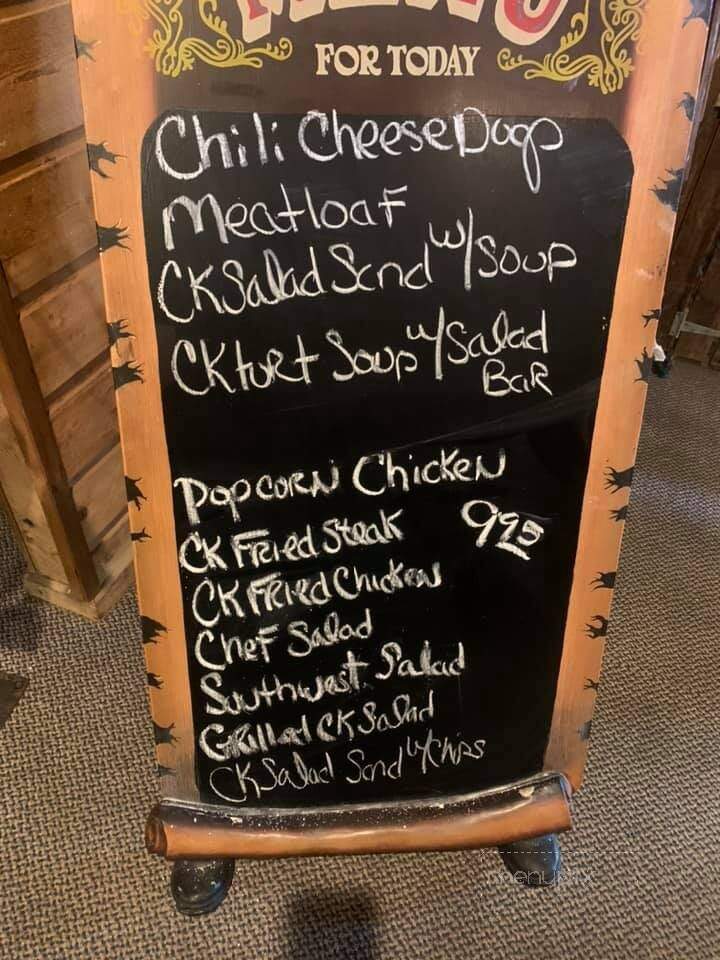 MENU
FOR TODAY
Chili Cheese Dogs
Meatloaf
CK Salad Sand w/ Soup
CK tort Soup w/ Salad
Bar
Popcorn Chicken
CK Fried Steak 995
CK Fried Chicken
Chef Salad
Southwest Salad
Grilled CK Salad
CK Salad Sand w/ Chips
menupix